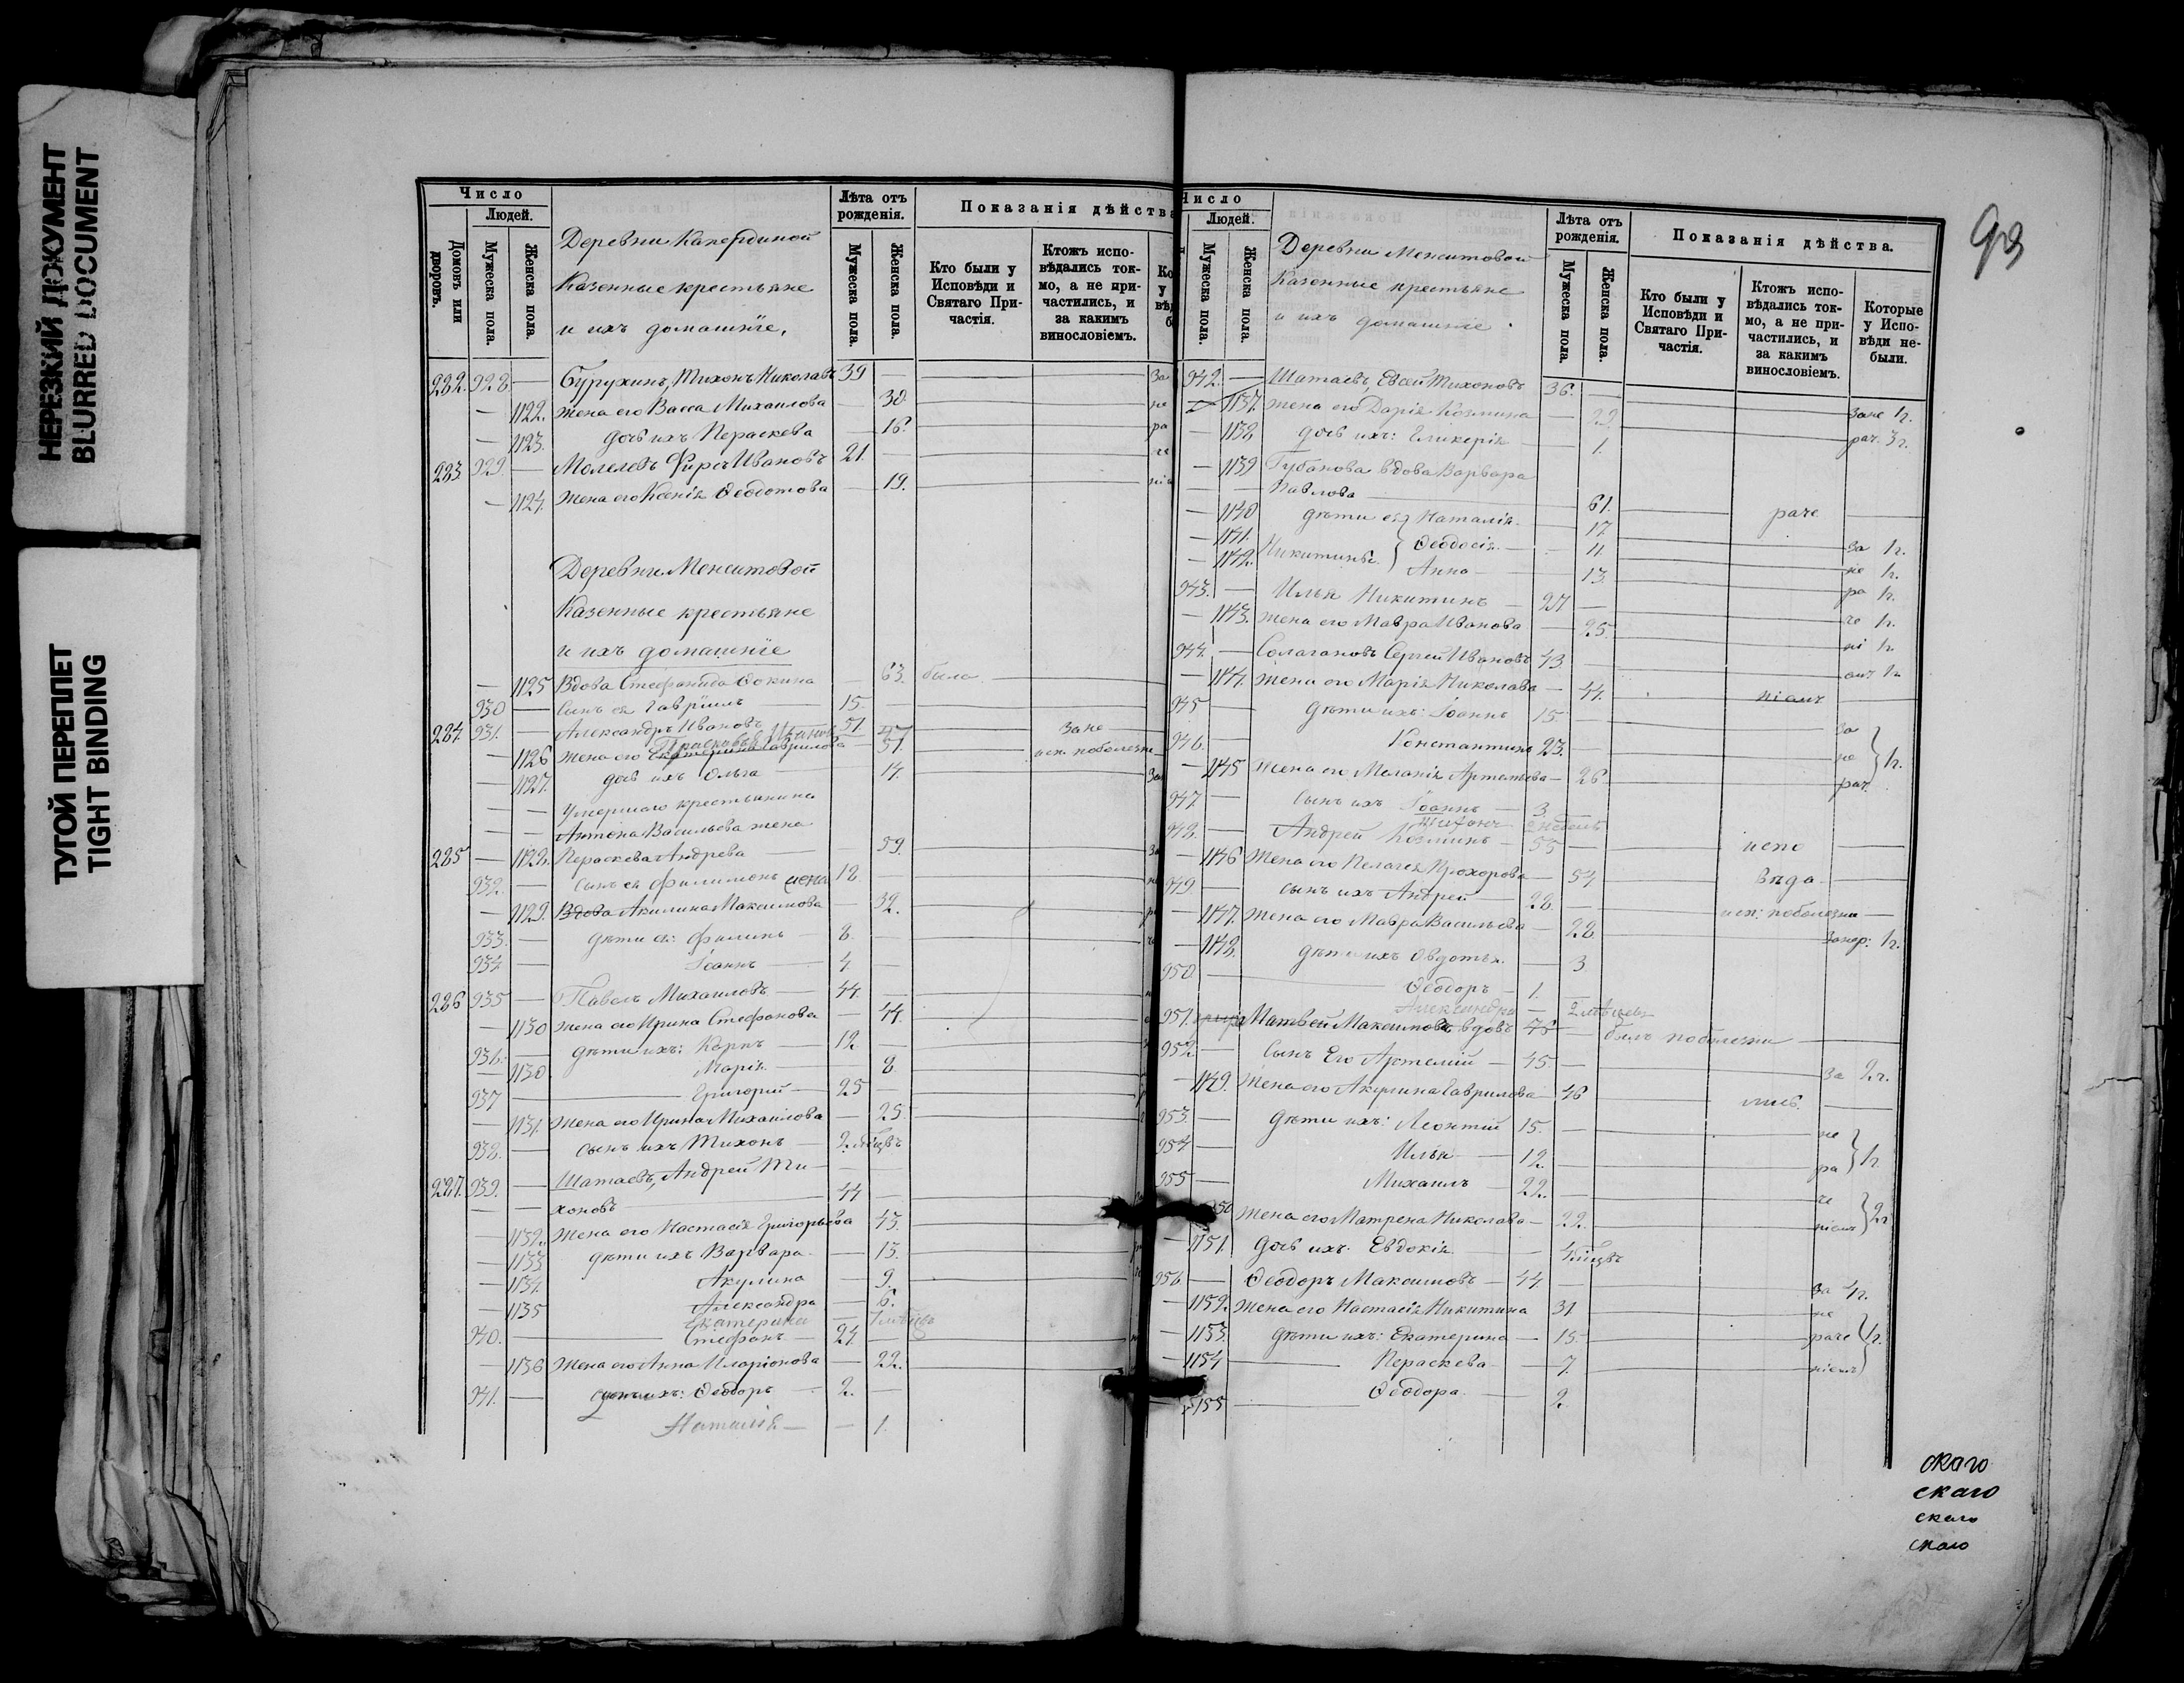 НЕРЕЗКИЙ ДОКУМЕНТ
BLURRED DOCUMENT
ТУГОЙ ПЕРЕПЛЕТ
TIGHT BINDING
Число
Людей.
Домовъ или дворовъ.
Мужеска пола.
Женска пола.
Деревни Какердиной
Казенные крестьяне
и ихъ домашніе,
Лѣта отъ рожденія.
Мужеска пола.
Женска пола.
Показанія дѣйства
Кто были у Исповѣди и Святаго Причастія.
Ктожъ исповѣдались токмо, а не причастились, и за какимъ винословіемъ.
282. 928 — Бурухинъ, Тихонъ Николаевъ 39 —
— 1122. жена его Васса Михаилова — 30.
— 1123. дочь ихъ Пераскева — 16.
283. 929. — Ивановъ 21. —
— 1124. жена его Ксенія Ѳеодотова — 19.
Деревни Менситовой
Казенные крестьяне
и ихъ домашніе
— 1125 Вдова Стефанида Фокина — 63. была
930 — сынъ ея Гавріилъ — 15. —
284. 931. — Александръ Ивановъ 51 зане
— 1126 жена его Екатерина Гаврилова — 51. исп. поболезни
Прасковья Иванова 47
— 1127. дочь ихъ Ольга — 14.
— — Умершаго крестьянина
— — Антона Васильева жена
285 — 1128. Пераскева Андрева — 59.
932. — сынъ ея Филимонъ 18. —
— 1129. Вдова Акилина Максимова — 32.
933. — дѣти ея: Филипъ — 8. —
934 — Іоаннъ — 4. —
286 935 — Павелъ Михаиловъ — 44. —
— 1130 жена его Ирина Стефанова — 44.
936. — дѣти ихъ: Карпъ — 12. —
1130 Марія — 8
937 — Григорій — 25 —
— 1131. жена его Ирина Михаилова — 25.
938. — сынъ ихъ Тихонъ — 2. мѣцвъ
287. 939. — Шатаевъ, Андрей Ти-
— — хоновъ — 44 —
— 1132. жена его Настасія Григорьева 43.
— 1133 дѣти ихъ Варвара — 13.
— 1134. Акулина — 9.
— 1135 Александра — 6.
Екатерина —
940. — Стефанъ — 24 —
— 1136 жена его Анна Иларіонова — 22.
941. — сынъ ихъ: Ѳеодоръ — 2. —
Наталія — — 1.
93
Число
Людей.
Мужеска пола.
Женска пола.
Деревни Менситовой
Казенные крестьяне
и ихъ домашніе.
Лѣта отъ рожденія.
Мужеска пола.
Женска пола.
Показанія дѣйства.
Кто были у Исповѣди и Святаго Причастія.
Ктожъ исповѣдались токмо, а не причастились, и за какимъ винословіемъ.
Которые у Исповѣди не-были.
942. — Шатаевъ, Евсей Тихоновъ 36. — зане 1г.
1137. жена его Дарія Козмина — 22. рач. 3г.
— 1138 дочь ихъ: Гликерія — 1.
— 1139 Губанова вдова Варвара
— — Павлова — 61. раче
— 1140 дѣти ея Наталія — 17 за 1г.
— 1141. Никитины Ѳеодосія — 11. не 1г.
— 1142. Анна — 13. ра 1г.
943. — Илья Никитинъ — 27 — че 1г.
— 1143. жена его Мавра Иванова — 25. ні 1г.
944. — Салагановъ Сергей Ивановъ 43. —
— 1144. жена его Марія Николаева — 44. ніемъ
945 — дѣти ихъ: Іоаннъ 15. — за
946. — Константинъ 23. — не 1г.
— 1145 жена его Меланія Артемьева — 26. рач.
947. — сынъ ихъ Іоаннъ — 3.
948. — Андрей Козминъ — 55 — испо
— 1146 жена его Пелагея Прохорова — 54 вѣда
949. — сынъ ихъ Андрей — 28. — исп: поболезни —
— 1147. жена его Мавра Васильева — 28. 1г.
— 1148. дѣти ихъ Овдотья. — 3
950. — Ѳеодоръ — 1.
Александра —
951. Матвей Максимовъ вдовъ 75 — былъ поболезни
952. — сынъ Его Артемій — 45. — за 2г.
— 1149. жена его Акулина Гаврилова — 46
953. — дѣти ихъ: Леонтій 15. — не
954 — Илья — 12. — ра 1г.
955 — Михаилъ — 22. — че
жена его Матрена Николаева — 22. ніемъ 2г
— 1151. дочь ихъ. Евдокія — 4 мѣцвъ
956. — Ѳеодоръ Максимовъ — 44. — за 4г.
— 1152. жена его Настасія Никитина 31 не
— 1153. дѣти ихъ: Екатерина — 15. — раче 1г.
— 1154 — Пераскева — 7. ніемъ
1155 — Ѳеодора. — 2.
скаго
скаго
скаго
скаго